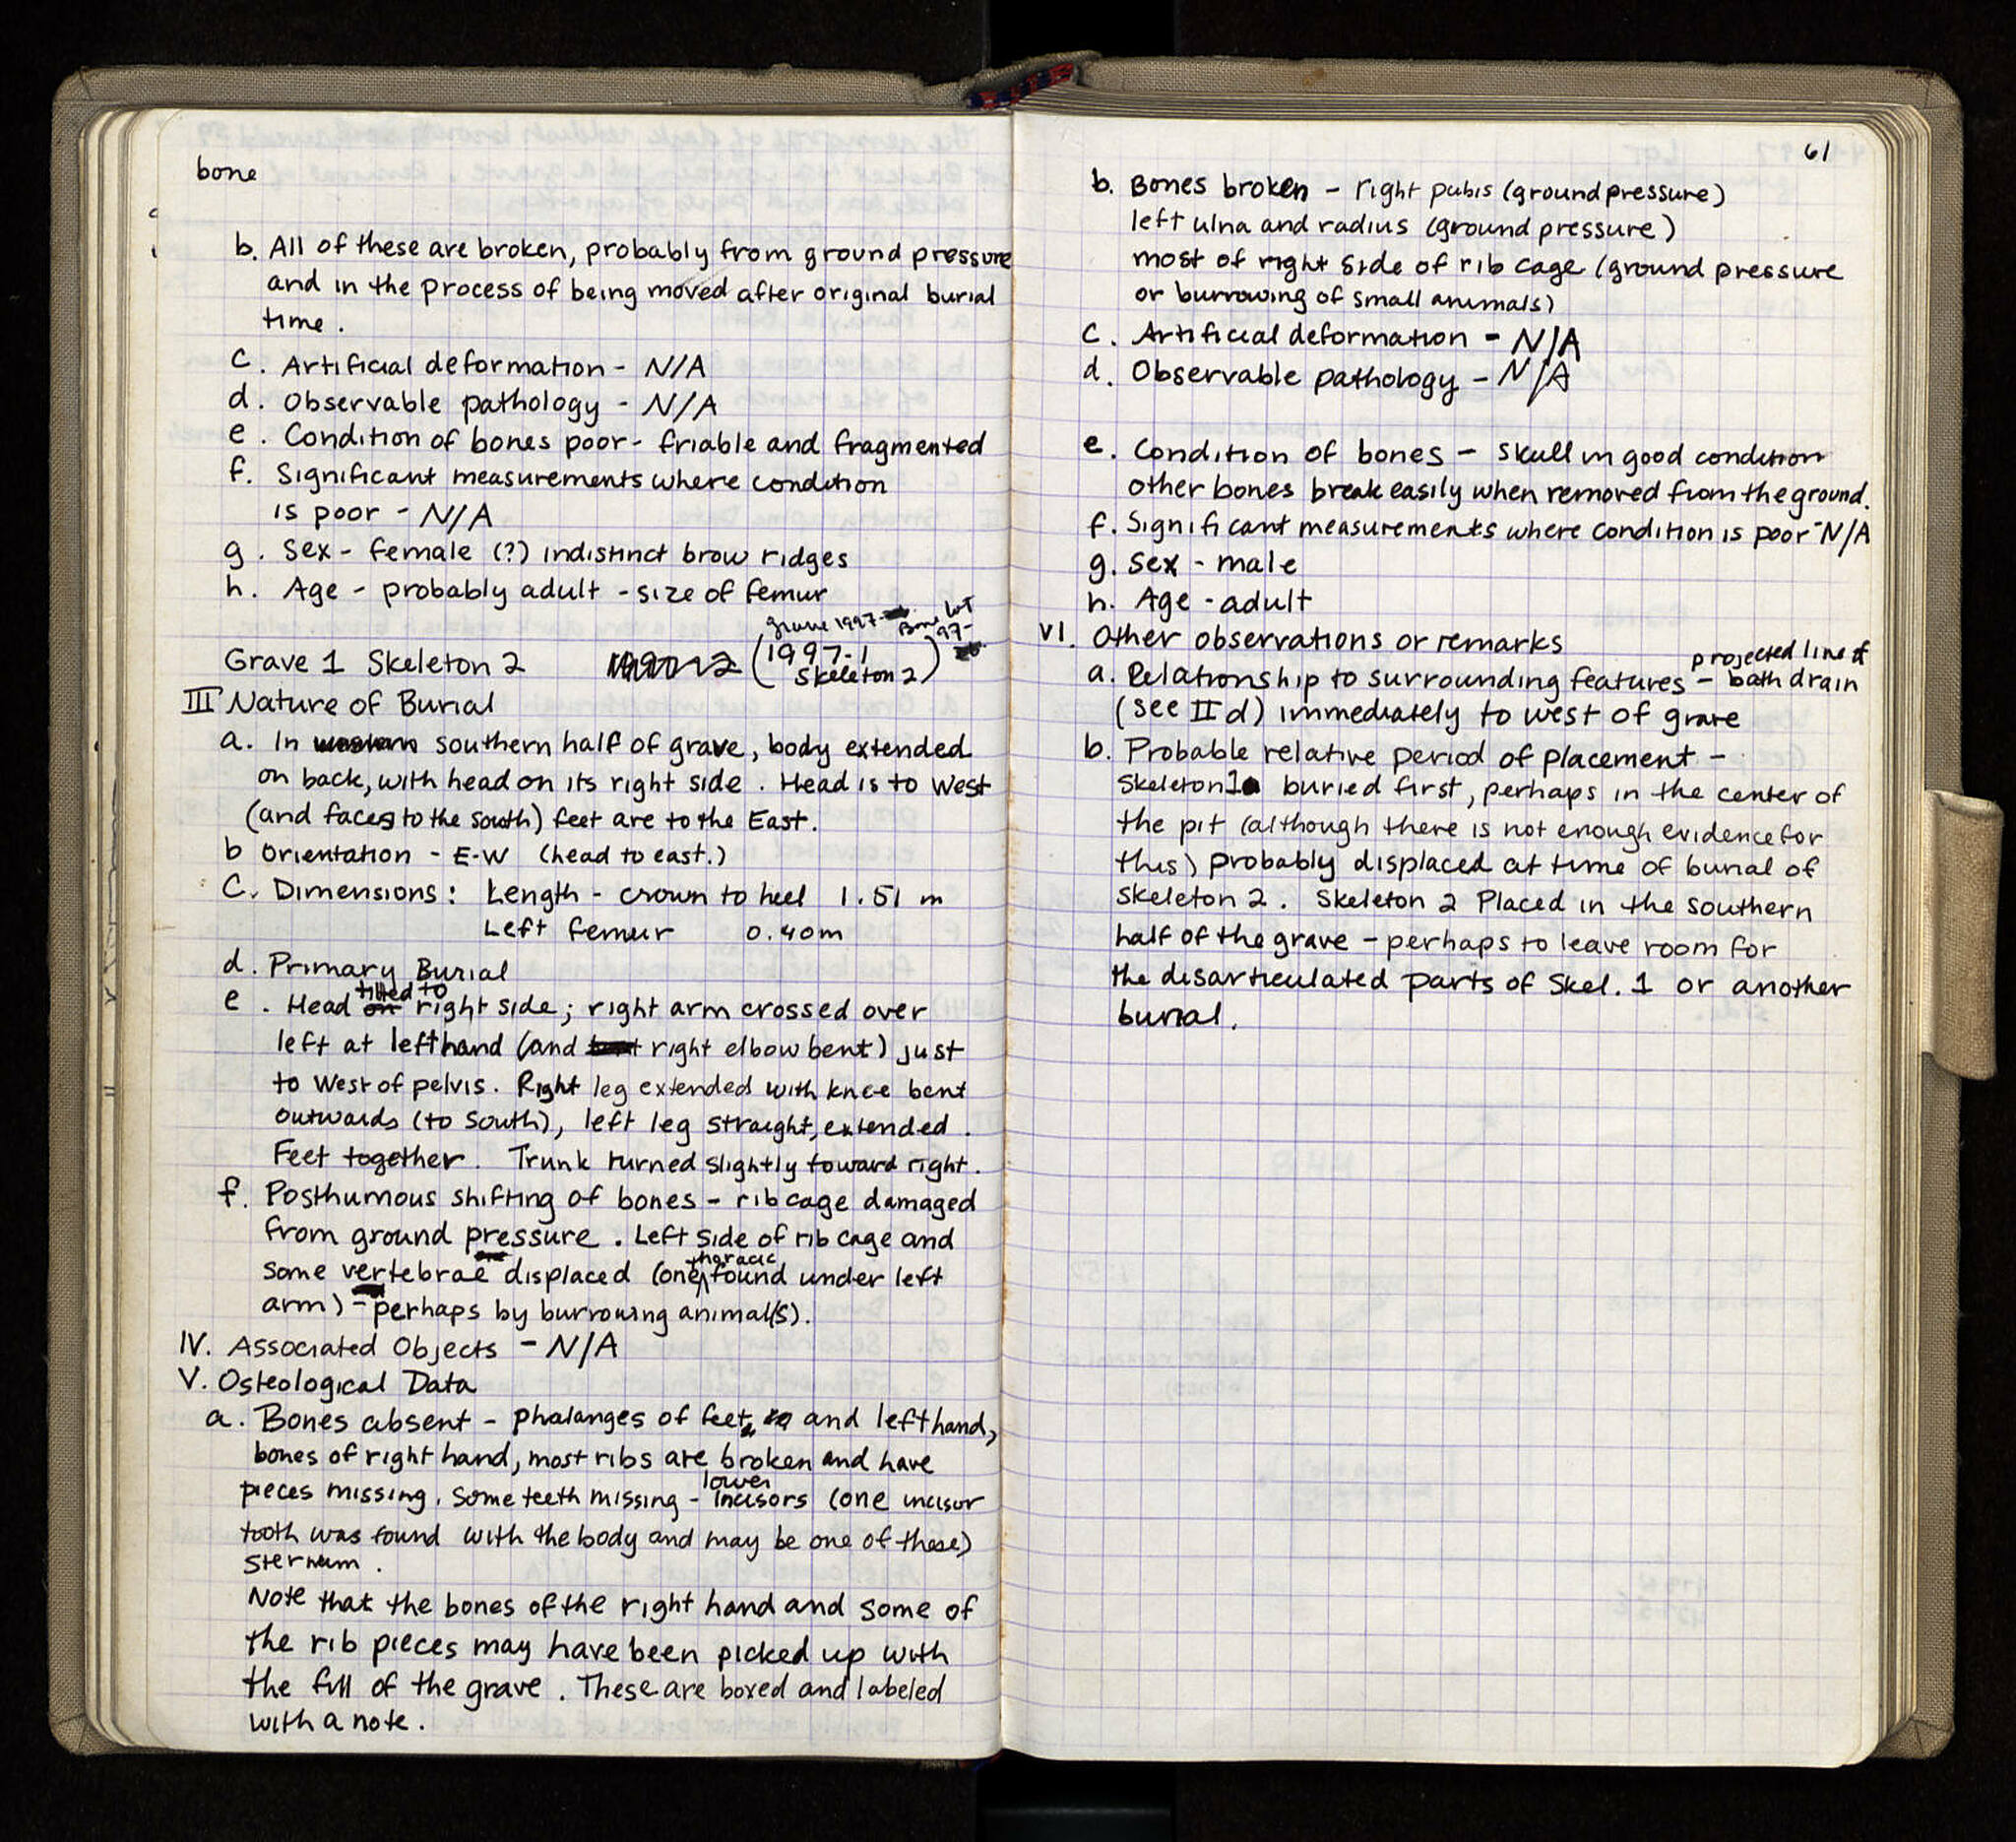 bone
b. All of these are broken, probably from ground pressure
and in the process of being moved after original burial
time.
c. Artificial deformation - N/A
d. Observable pathology - N/A
e. Condition of bones poor - friable and fragmented
f. Significant measurements where condition
is poor - N/A
g. Sex - female (?) indistinct brow ridges
h. Age - probably adult - size of femur
grave 1997- Bone Lot
97-
Grave 1 Skeleton 2 (1997-1
Skeleton 2)
III Nature of Burial
a. In southern half of grave, body extended
on back, with head on its right side. Head is to West
(and faces to the south) feet are to the East.
b Orientation - E-W (head to east.)
C. Dimensions: Length - crown to heel 1.51 m
Left femur 0.40m
d. Primary Burial
tilted to
e. Head on right side; right arm crossed over
left at left hand (and right elbow bent) just
to West of pelvis. Right leg extended with knee bent
outwards (to South), left leg straight, extended.
Feet together. Trunk turned slightly toward right.
f. Posthumous shifting of bones - rib cage damaged
from ground pressure. Left side of rib cage and
thoracic
some vertebrae displaced (one found under left
arm) - perhaps by burrowing animal(s).
IV. Associated Objects - N/A
V. Osteological Data
a. Bones absent - phalanges of feet, and left hand,
bones of right hand, most ribs are broken and have
lower
pieces missing. Some teeth missing - incisors (one incisor
tooth was found with the body and may be one of these)
sternum.
Note that the bones of the right hand and some of
the rib pieces may have been picked up with
the fill of the grave. These are boxed and labeled
with a note.
61
b. Bones broken - right pubis (ground pressure)
left ulna and radius (ground pressure)
most of right side of rib cage (ground pressure
or burrowing of small animals)
c. Artificial deformation - N/A
d. Observable pathology - N/A
e. Condition of bones - skull in good condition
other bones break easily when removed from the ground.
f. Significant measurements where condition is poor - N/A
g. Sex - male
h. Age - adult
VI. Other observations or remarks
projected line of
a. Relationship to surrounding features - bath drain
(see II d) immediately to west of grave
b. Probable relative period of placement -
Skeleton 1 buried first, perhaps in the center of
the pit (although there is not enough evidence for
this) probably displaced at time of burial of
skeleton 2. Skeleton 2 Placed in the southern
half of the grave - perhaps to leave room for
the disarticulated parts of Skel. 1 or another
burial.